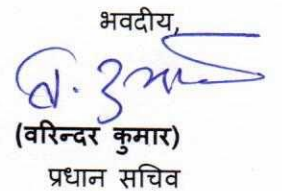 भवदीय,
(वरिन्दर कुमार)
प्रधान सचिव